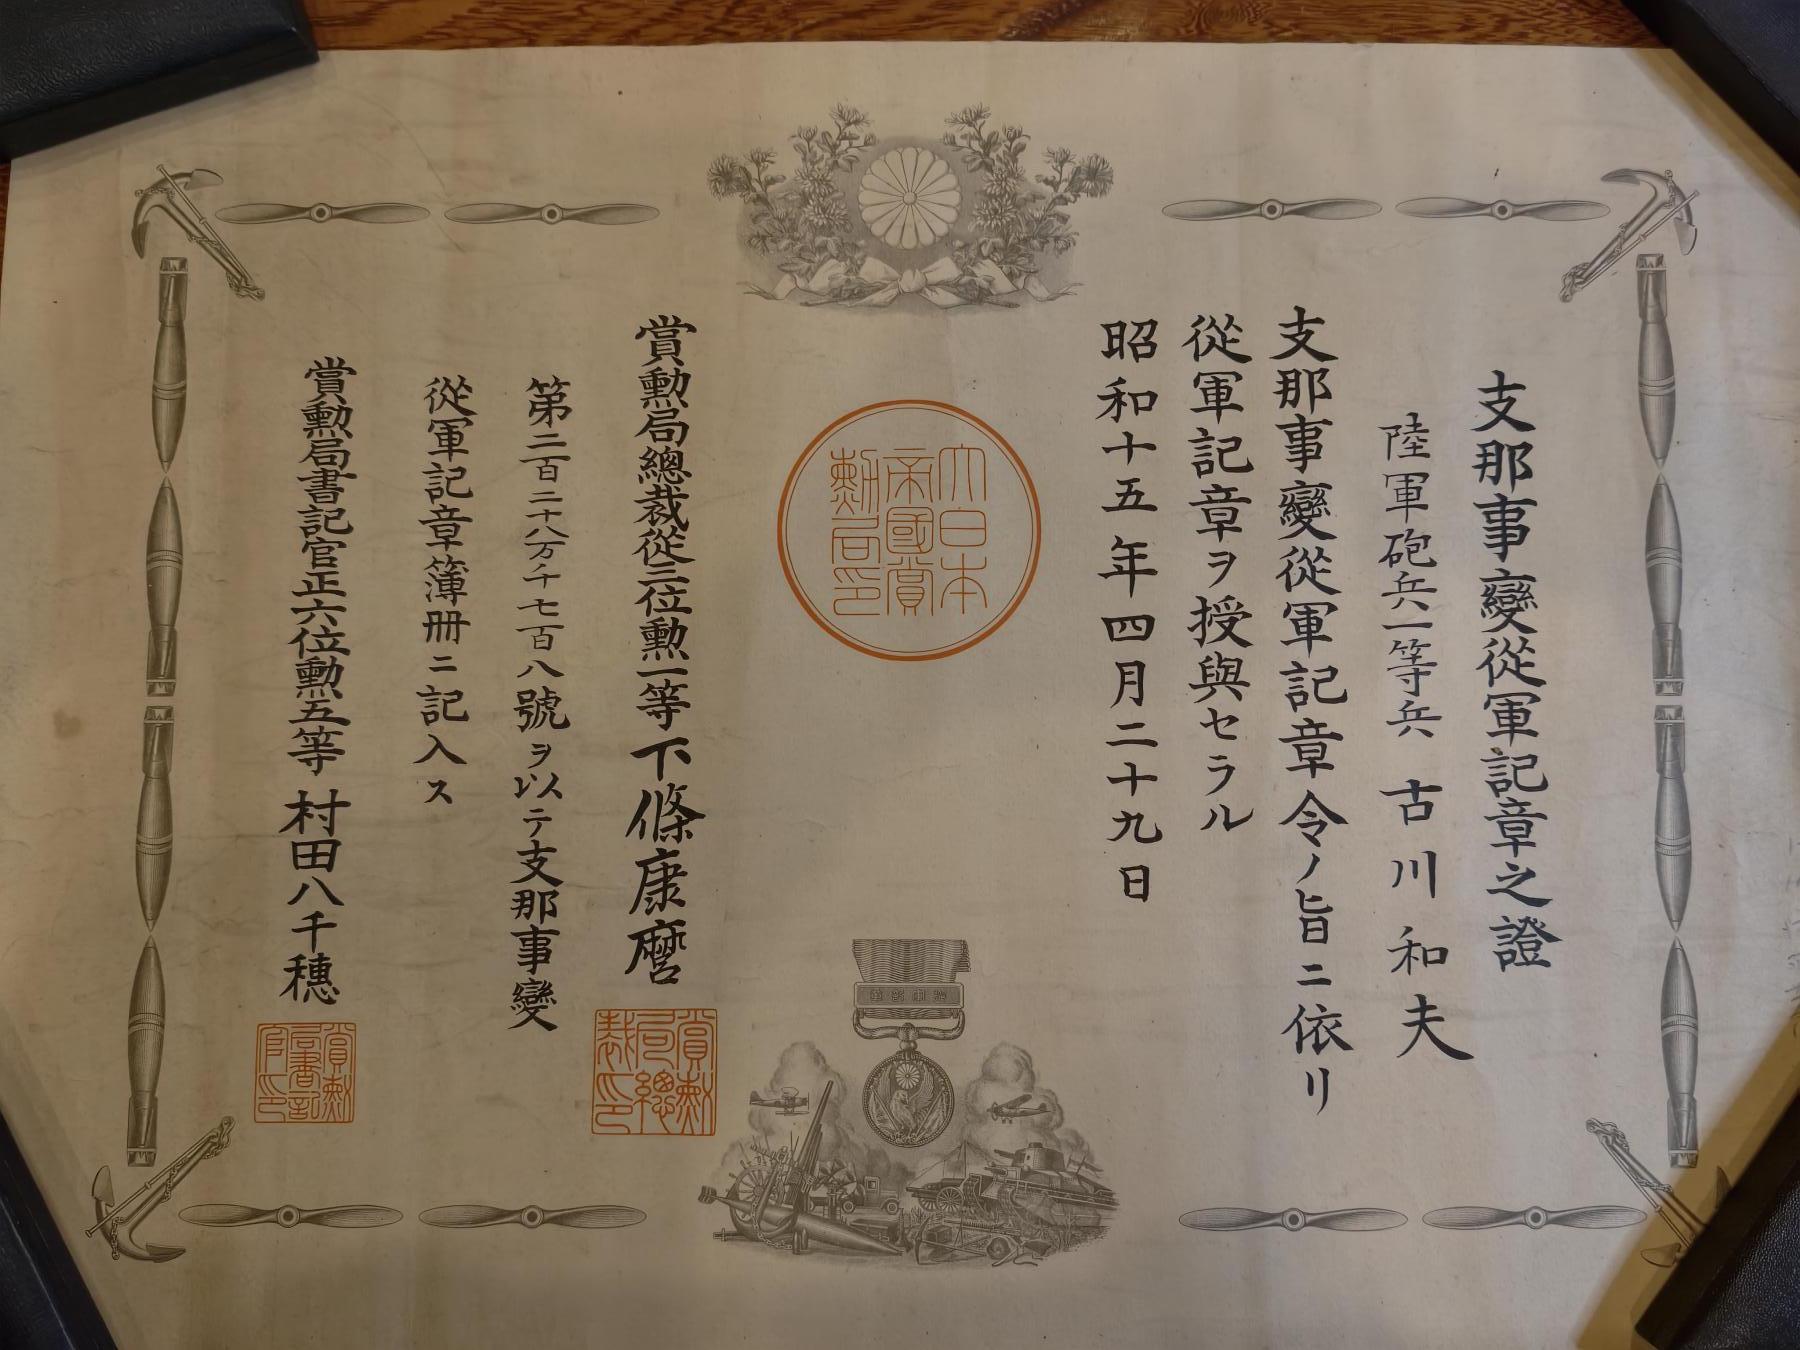 支那事變從軍記章之證
陸軍砲兵一等兵 古川和夫
支那事變從軍記章令ノ旨ニ依リ
從軍記章ヲ授與セラル
昭和十五年四月二十九日
大日本
帝國賞
勲局印
賞勲局總裁從三位勲一等下條康麿
第二百二十八万千七百八號ヲ以テ支那事變
從軍記章簿冊ニ記入ス
賞勲局書記官正六位勲五等村田八千穗
賞勲
局總
裁印
賞勲
局書記
官印
章記軍從